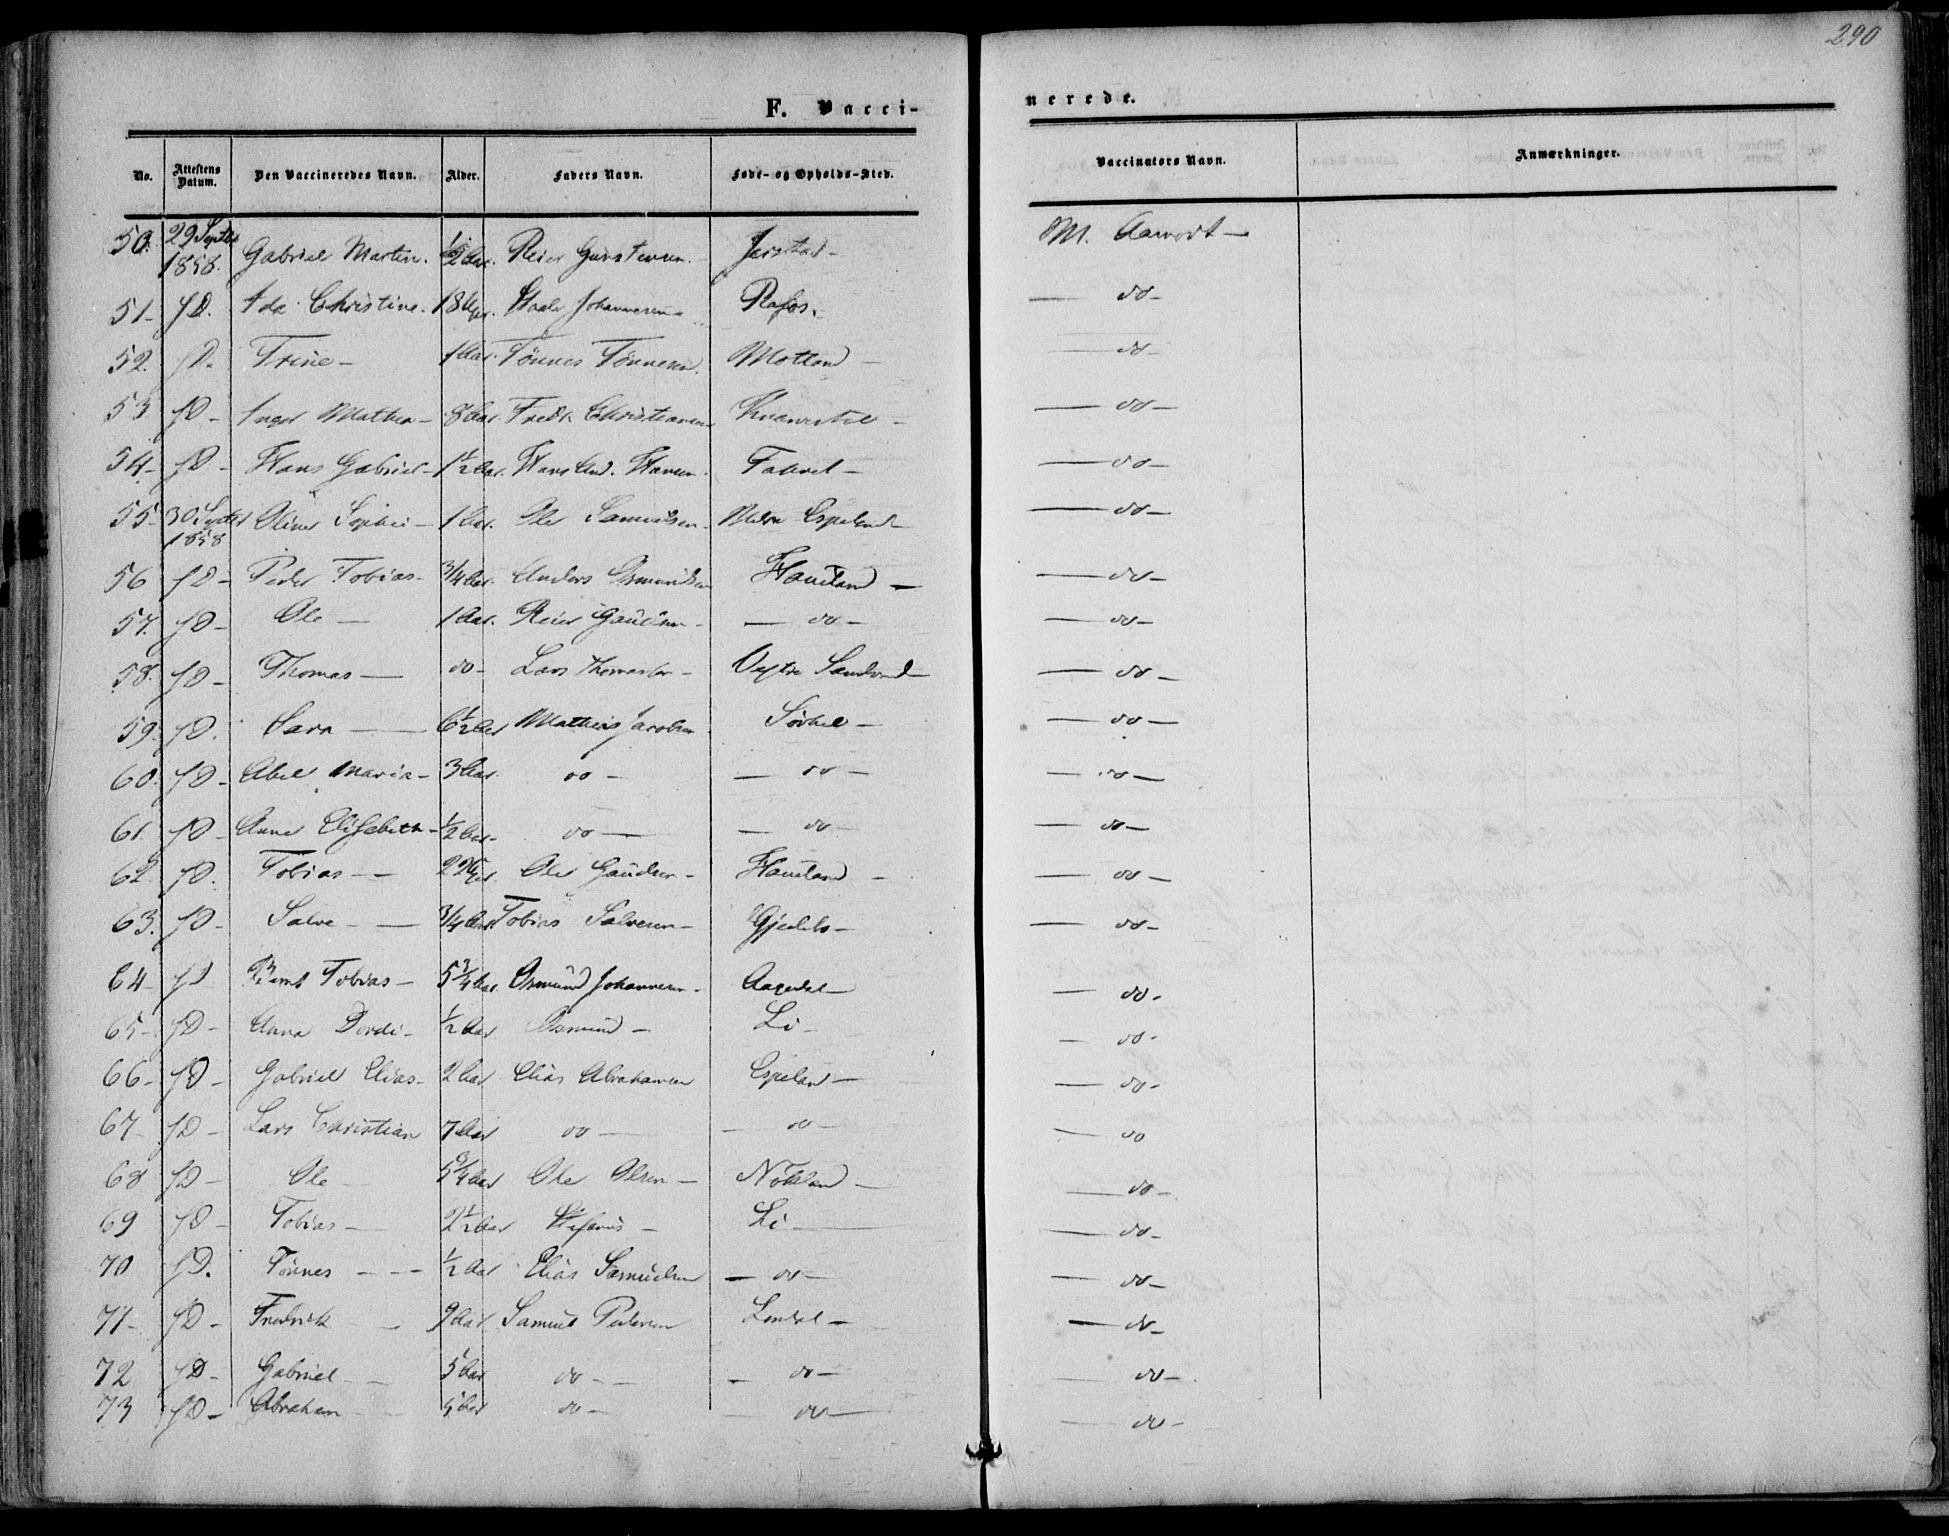 290
F. Vacci-
nerede.
No. Attestens Datum. Den Vaccineredes Navn. Alder. Faders Navn. Føde- og Opholds-Sted. Vaccinators Navn. Anmærkninger.
50. 29 Septbr 1858. Gabriel Martin. 1/2 Aar. Reier Jerstad - M.
51- s.D. Ada Christine. Johannesen Rafos. do-
52. s.D. Trine - 1 Aar. Tönnes Tönnesen. Motland - do-
53 s.D - Inger Mathea - 8 Aar. Fredr. Christiansen do-
54- s.D - Hans Gabriel - 1 1/2 Aar. Hans And. Hansen. do-
55- 30 Septbr 1858 Sophie - 1 Aar. Ole Samuelsen - Nedre Espeland do-
56 s.D - Peder Tobias. 3/4 Aar. Anders Osmundsen Haueland - do-
57. s.D - Ole - 1 Aar. Reier Gaudsen - do - do-
58. s.D - Thomas - do - Lars Thomassen - Sandvand do-
59. s.D. Sara - 6 1/2 Aar Mathias Jacobsen do-
60. s.D - Abel Maria - 3 Aar. do - do - do-
61. s.D - Anne Elisabeth - 1/2 Aar. do - do - do-
62. s.D. Tobias - Ole Gaudsen - Haueland - do-
63. s.D - Salve - 3/4 Aar Tobias Salvesen - do-
64- s.D Bernt Tobias - Osmund Johannesen - Aagedal do-
65- s.D - Anna Dordi - 1/2 Aar Osmund - Li - do-
66- s.D - Gabriel Elias - 2 Aar Elias Abrahamsen Espeland - do-
67- s.D - Lars Christian 7 Aar do - do - do
68 s.D - Ole Ole Olsen - Nökland - do-
69 s.D - Tobias - 2 1/2 Aar Stefanus - Li - do-
70 s.D. Tönnes - 1/2 Aar Elias Samuelsen - do - do-
71- s.D - Fredrik - 9 Aar Samuel Pedersen Lindal - do-
72 s.D - Gabriel - 5 Aar do - do - do-
73 s.D - Abraham - do - do - do-